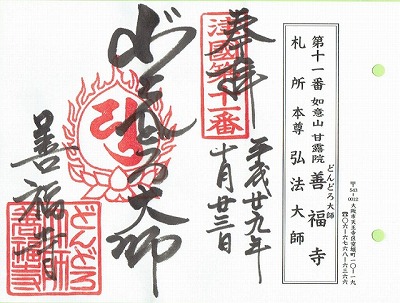 奉拝
津國第十一番
平成廿九年
十月廿三日
どんどろ大師
善福寺
どんどろ
大師
善福寺
第十一番 如意山 甘露院 善福寺
どんどろ大師
札所本尊 弘法大師
〒543-0012 大阪市天王寺区空堀町一〇-一九
☎〇六-六七六八-六三六六